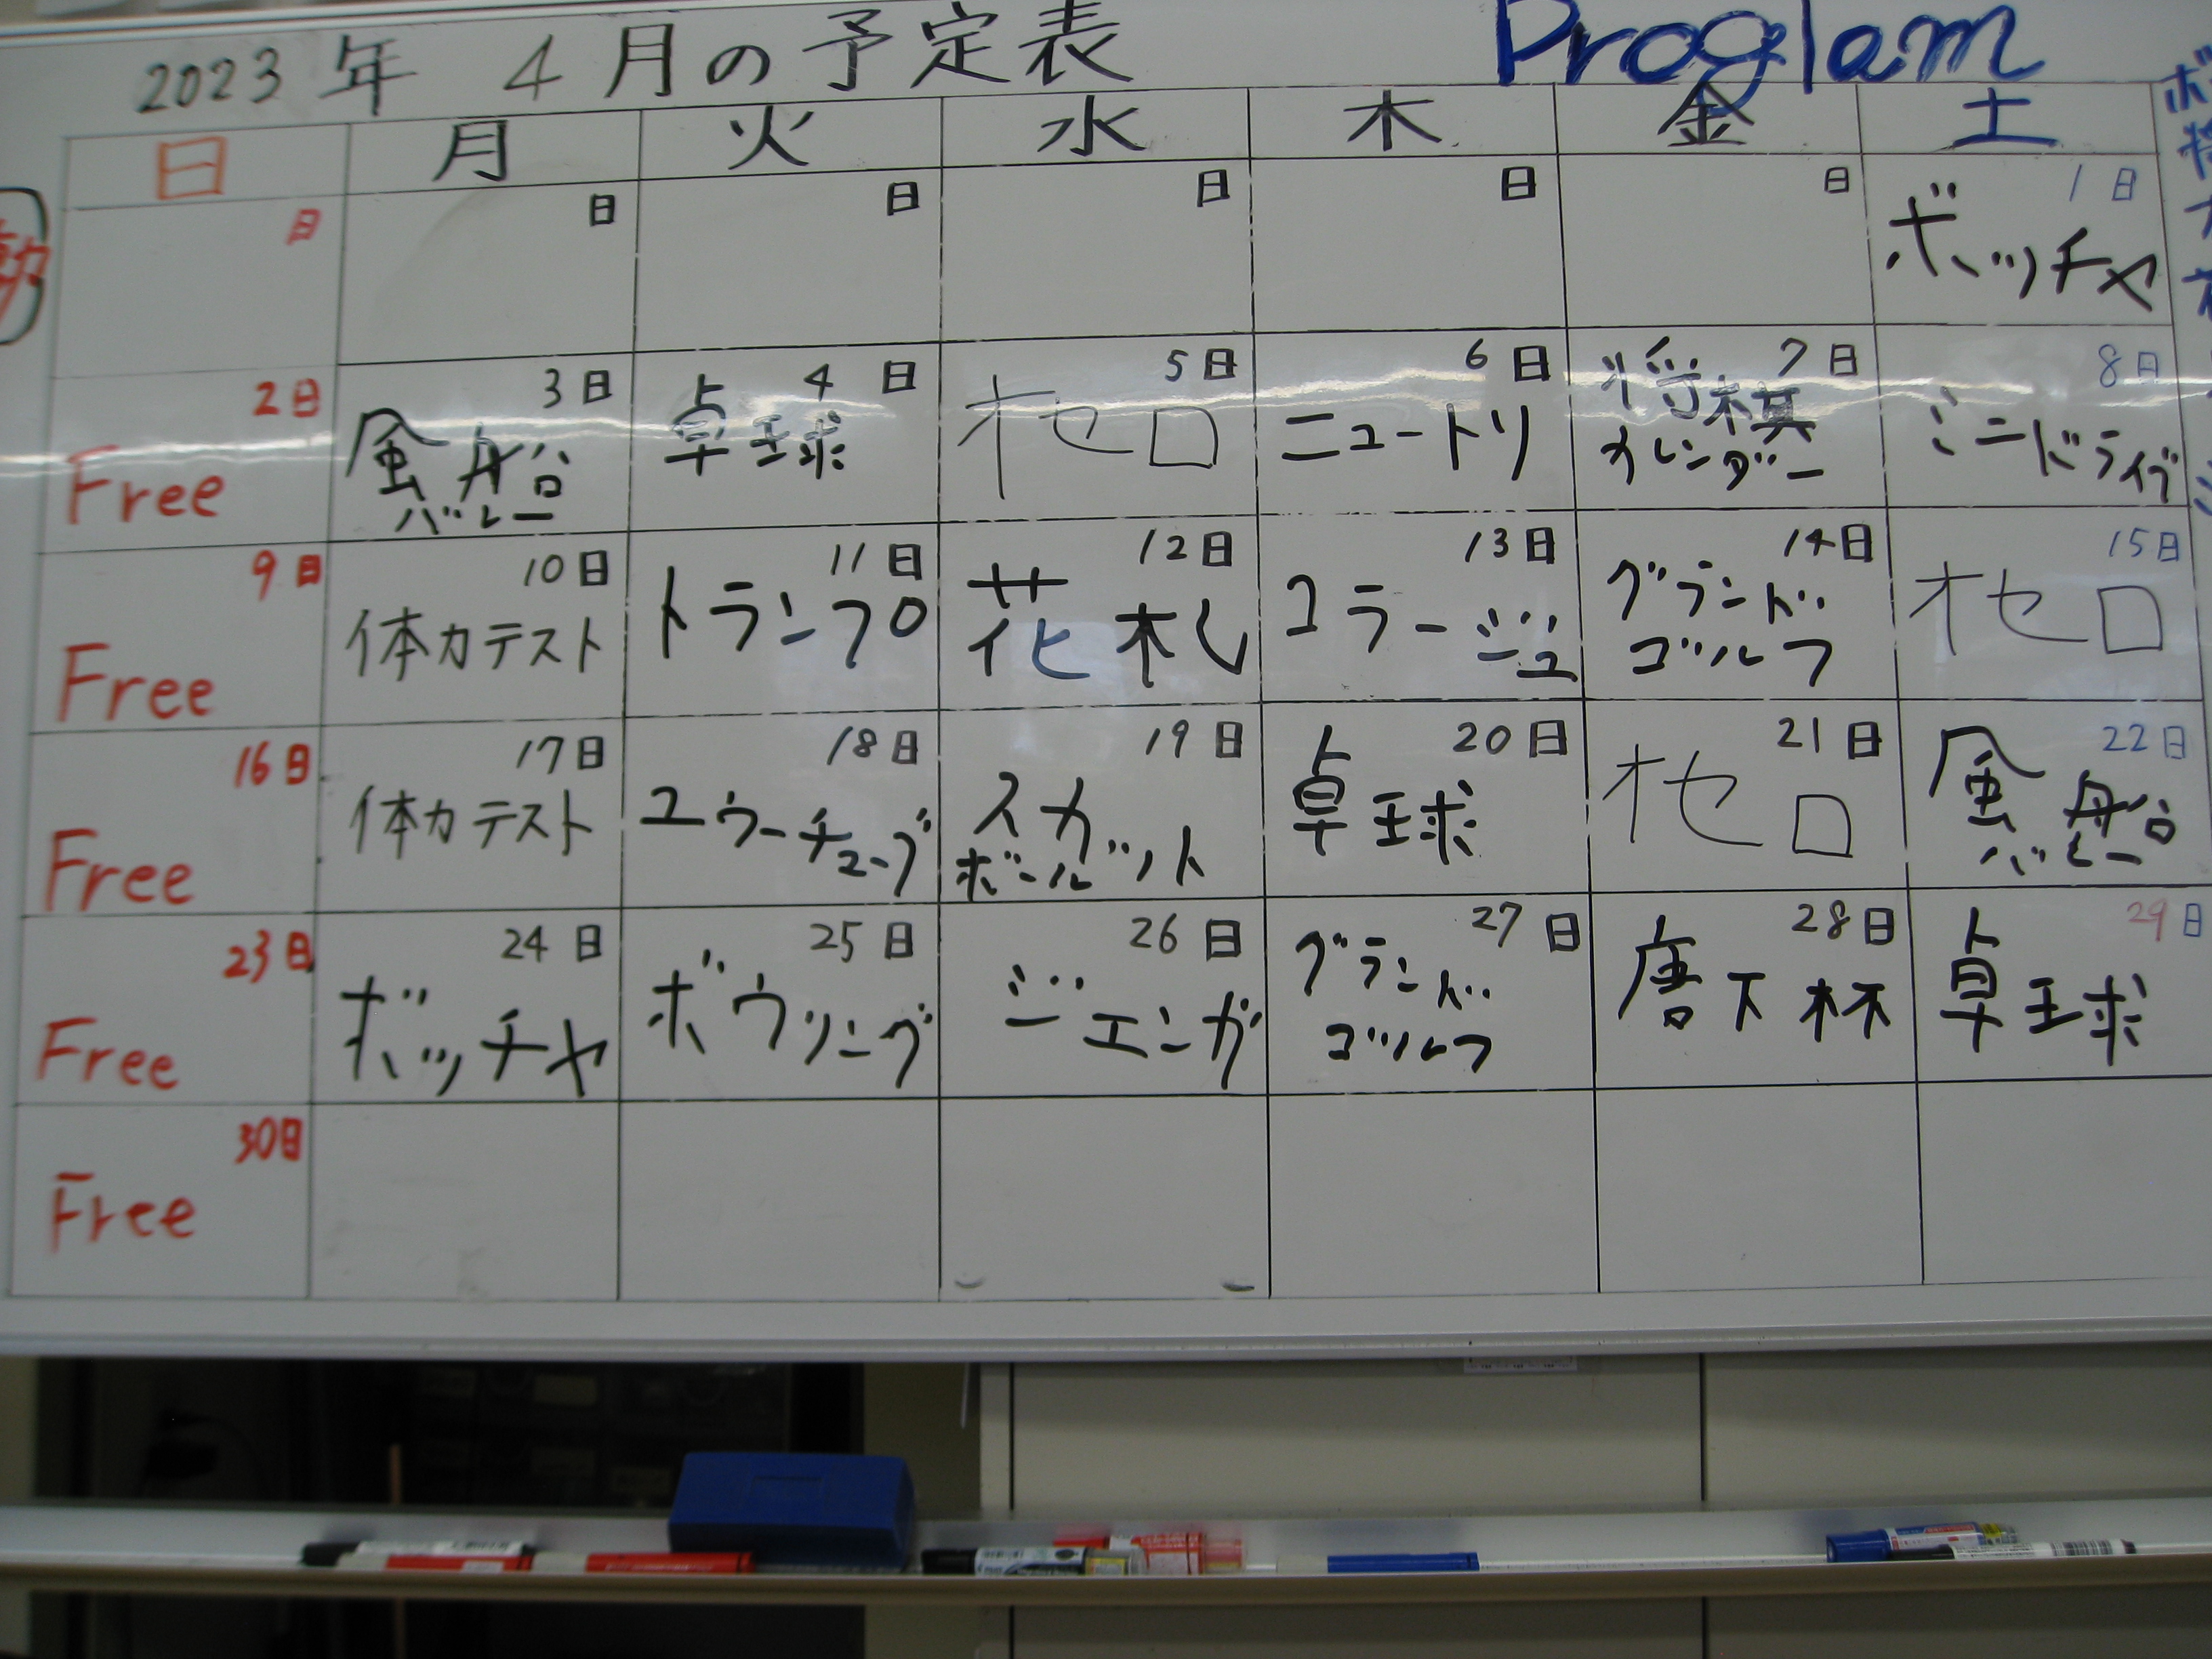 2023年 4月の予定表
Proglam
日 月 火 水 木 金 土
日 日 日 日 日 日 1日
ボッチャ
2日
Free
3日
風船
バレー
4日
卓球
5日
オセロ
6日
ニュートリ
7日
将棋
カレンダー
8日
ミニドライブ
9日
Free
10日
体力テスト
11日
トランプ
12日
花札
13日
コラージュ
14日
グランド
ゴルフ
15日
オセロ
16日
Free
17日
体力テスト
18日
ユウーチューブ
19日
スカット
ボール
20日
卓球
21日
オセロ
22日
風船
バレー
23日
Free
24日
ボッチャ
25日
ボウリング
26日
ジェンガ
27日
グランド
ゴルフ
28日
唐下杯
29日
卓球
30日
Free